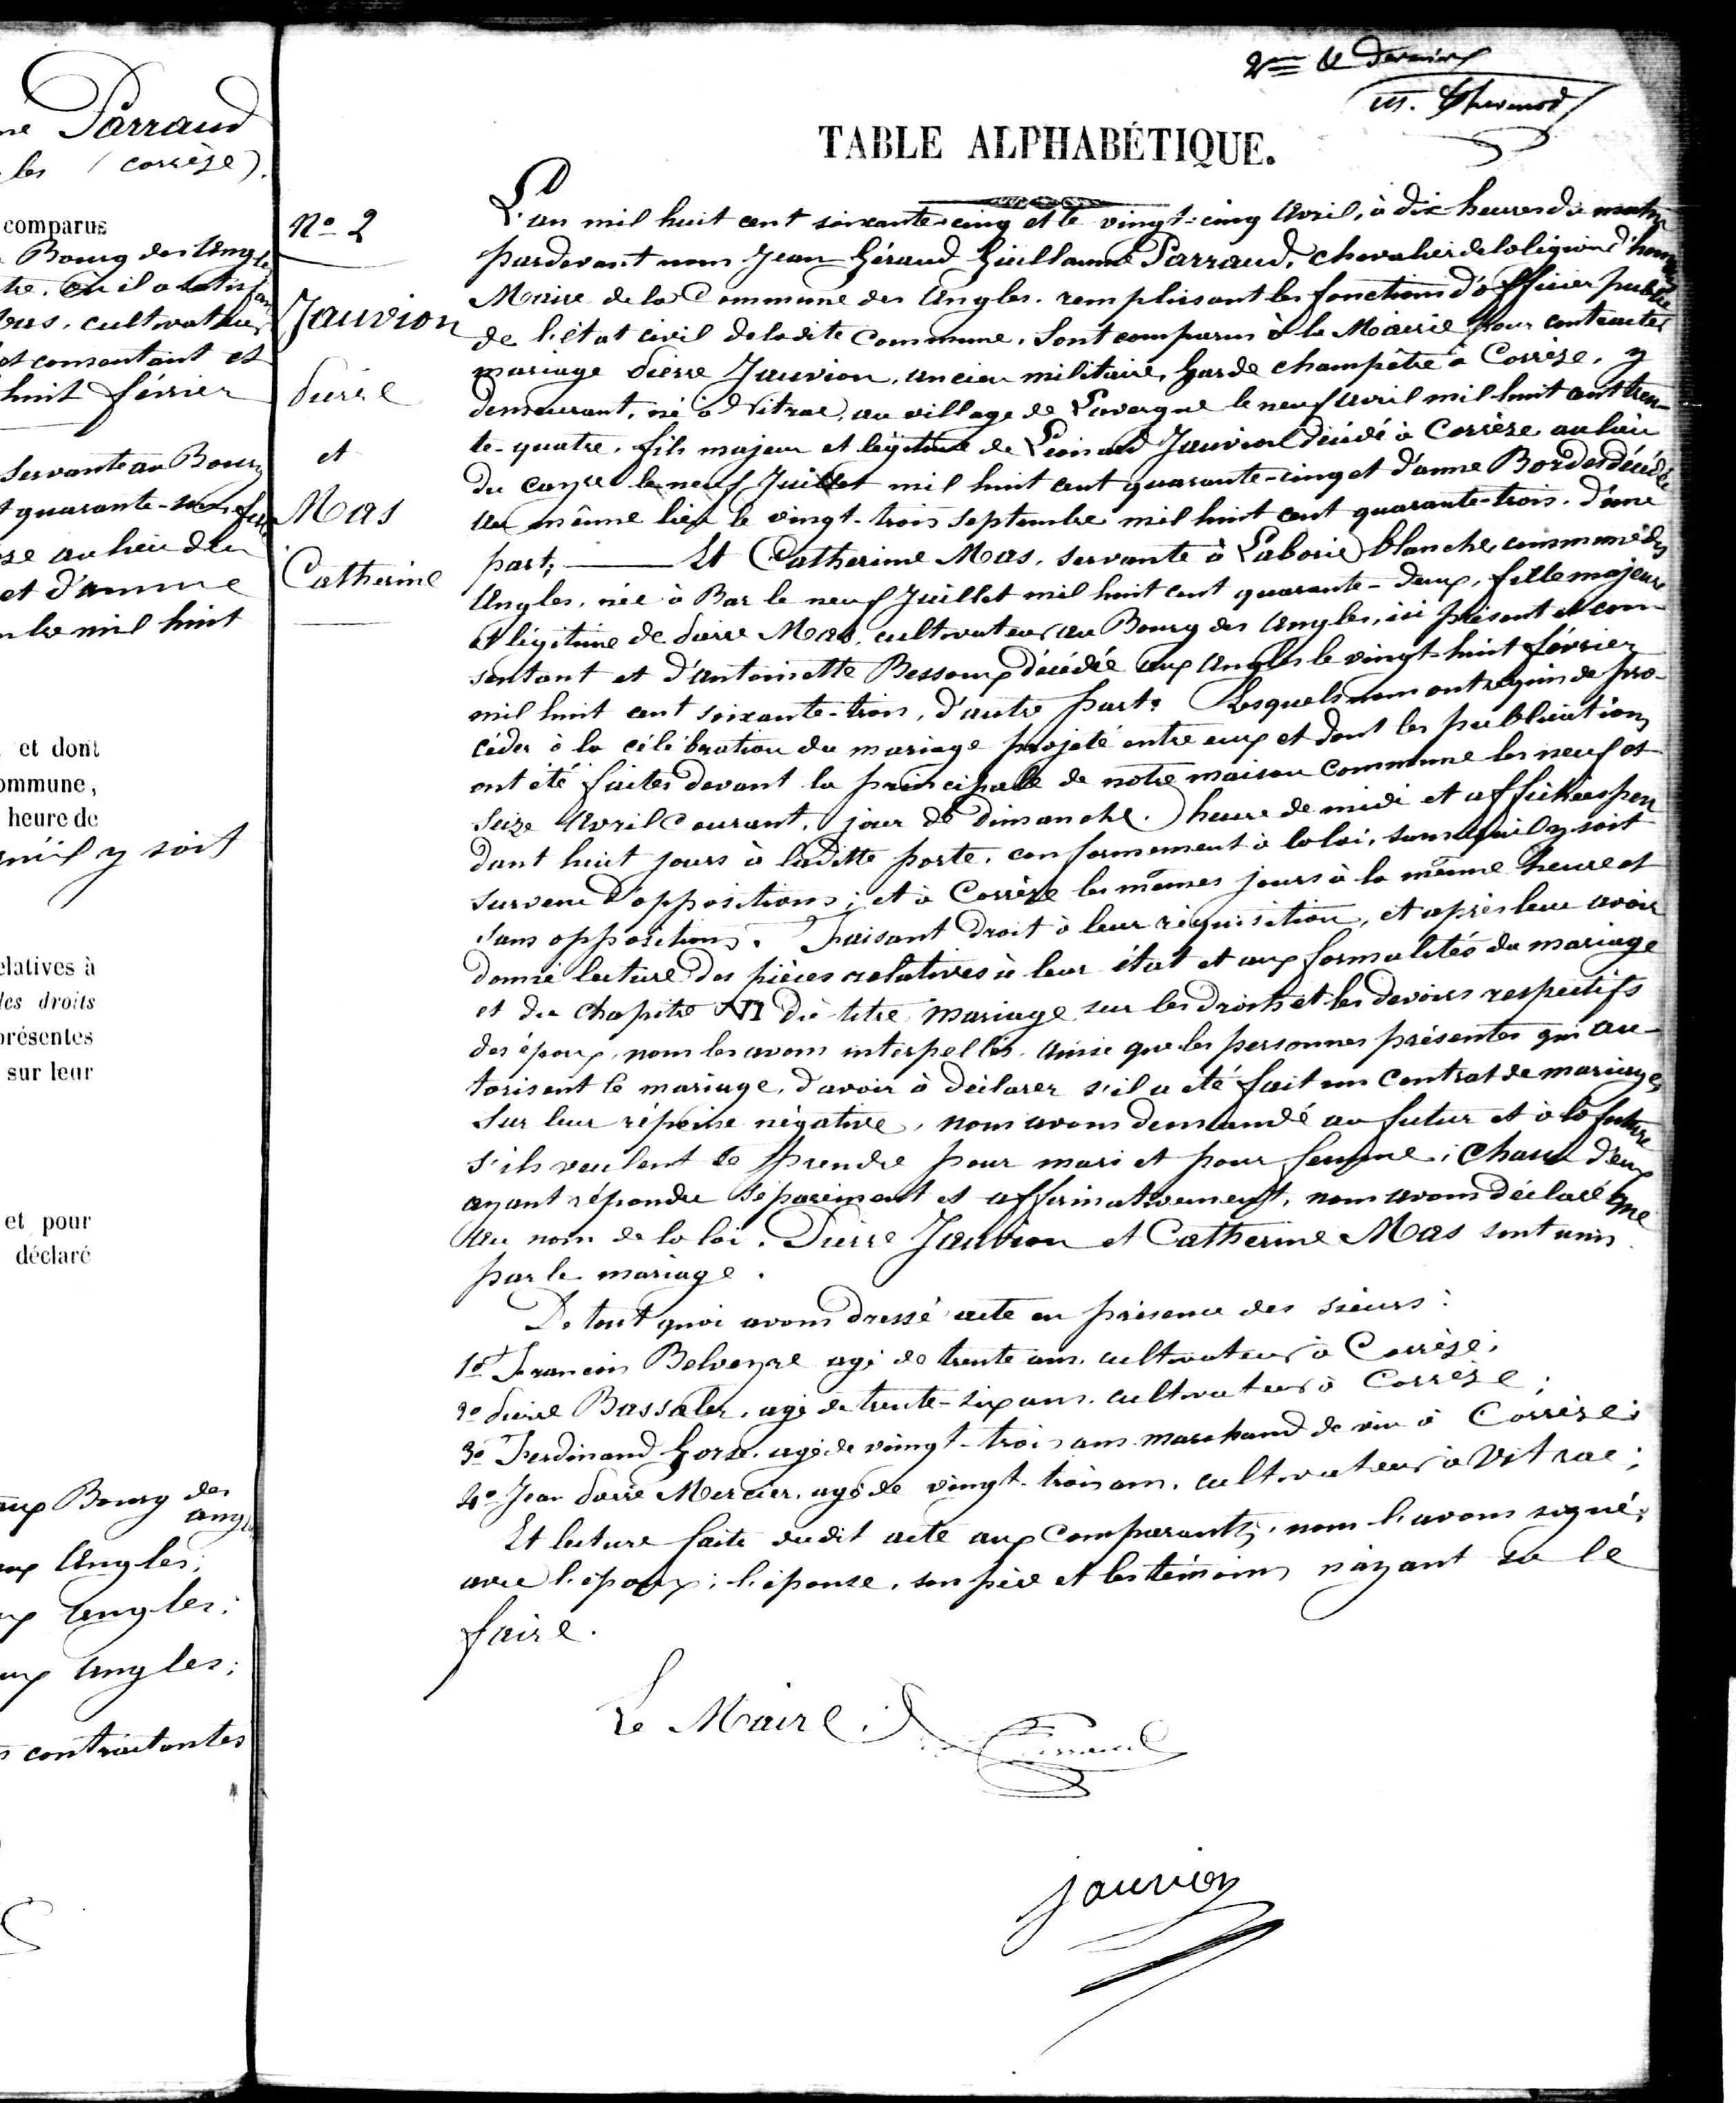 ne Parraud
les (Corrèze).
comparus
Bourg des Angles
cultivateur
et consentant et
huit février
Servante au Bourg
quarante-
au lieu de
et d'anne
mil huit
et dont
ommune,
heure de
qu'il y soit
elatives à
les droits
présentes
sur leur
et pour
déclaré
aux Bourg des
angles
aux Angles;
aux Angles;
aux Angles;
contractantes
2me & dernier
TABLE ALPHABÉTIQUE.
No 2
Jauvion
Pierre
et
Mas
Catherine
L'an mil huit cent soixante-cinq et le vingt-cinq Avril, à dix heures du matin
pardevant nous Jean Géraud Guillaume Parraud, chevalier de la légion d'honneur
Maire de la Commune des Angles, remplissant les fonctions d'officier public
de l'état civil de la dite Commune, Sont comparus à la Mairie pour contracter
mariage Pierre Jauvion, ancien militaire, Garde champêtre à Corrèze, y
demeurant, né à Vitrac, au village de Lavergne le neuf avril mil huit cent tren-
te-quatre, fils majeur et légitime de Léonard Jauvion décédé à Corrèze au lieu
du cayre le neuf Juillet mil huit cent quarante-cinq et d'anne Bordes décédée
au même lieu le vingt-trois septembre mil huit cent quarante-trois, d'une
part; Et Catherine Mas, servante à Laborie blanche commune des
Angles, née à Bar le neuf Juillet mil huit cent quarante-deux, fille majeure
et légitime de Pierre Mas, cultivateur au Bourg des Angles, ici présent et con-
sentant et d'antoinette Bessoux décédée aux Angles le vingt-huit février
mil huit cent soixante-trois, d'autre part; Lesquels nous ont requis de pro-
céder à la célébration du mariage projeté entre eux et dont les publications
ont été faites devant la principale de notre maison Commune les neuf et
seize Avril Courant, jour de Dimanche, heure de midi et affichées pen
dant huit jours à laditte porte, conformement à la loi, sans qu'il y soit
survenu d'oppositions; et à Corrèze les mêmes jours à la même heure et
sans oppositions. Faisant droit à leur réquisition, et après leur avoir
donné lecture des pièces relatives à leur état et aux formalités du mariage
et du chapitre VI du titre Mariage sur les droits et les devoirs respectifs
des époux, nous les avons interpellés, ainsi que les personnes présentes qui au-
torisent le mariage, d'avoir à déclarer s'il a été fait un contrat de mariage,
Sur leur réponse négative, nous avons demandé au futur et à la future
s'ils veulent se prendre pour mari et pour femme; Chacun d'eux
ayant répondu séparément et affirmativement, nous avons déclaré que
Au nom de la loi, Pierre Jauvion et Catherine Mas sont unis
par le mariage.
De tout quoi avons dressé acte en présence des sieurs:
1o François Belveyre agé de trente ans, cultivateur à Corrèze;
2o Pierre Bassaler, agé de trente-six ans, cultivateur à Corrèze;
3o Ferdinand Gorse, agé de vingt-trois ans marchand de vin à Corrèze;
4o Jean Pierre Mercier, agé de vingt-trois ans, cultivateur à Vitrac;
Et lecture faite dudit acte aux Comparants, nous l'avons signé,
avec l'époux; l'épouse, son père et les témoins n'ayant su le
faire.
Le Maire,
Parraud
jauvion